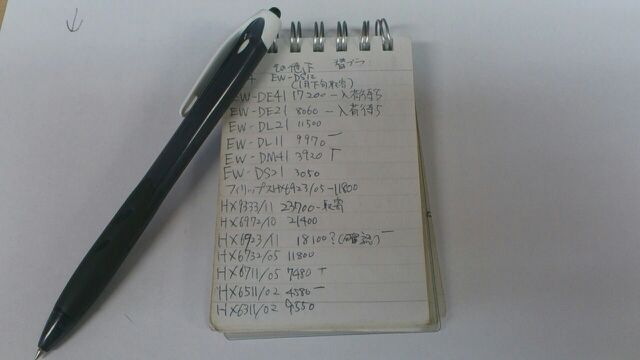 その他下 替ブラ
EW-DS12
(1月下旬取寄)
EW-DE41 17200-入荷待ち
EW-DE21 8060-入荷待ち
EW-DL21 11500
EW-DL11 9970
EW-DM41 3920
EW-DS21 3050
フィリップスHX6923/05-11800
HX9333/11 23700-取寄
HX6972/10 21400
HX6923/11 18100?(確認)
HX6732/05 11800
HX6711/05 7480
HX6511/02 4580
HX6311/02 4550